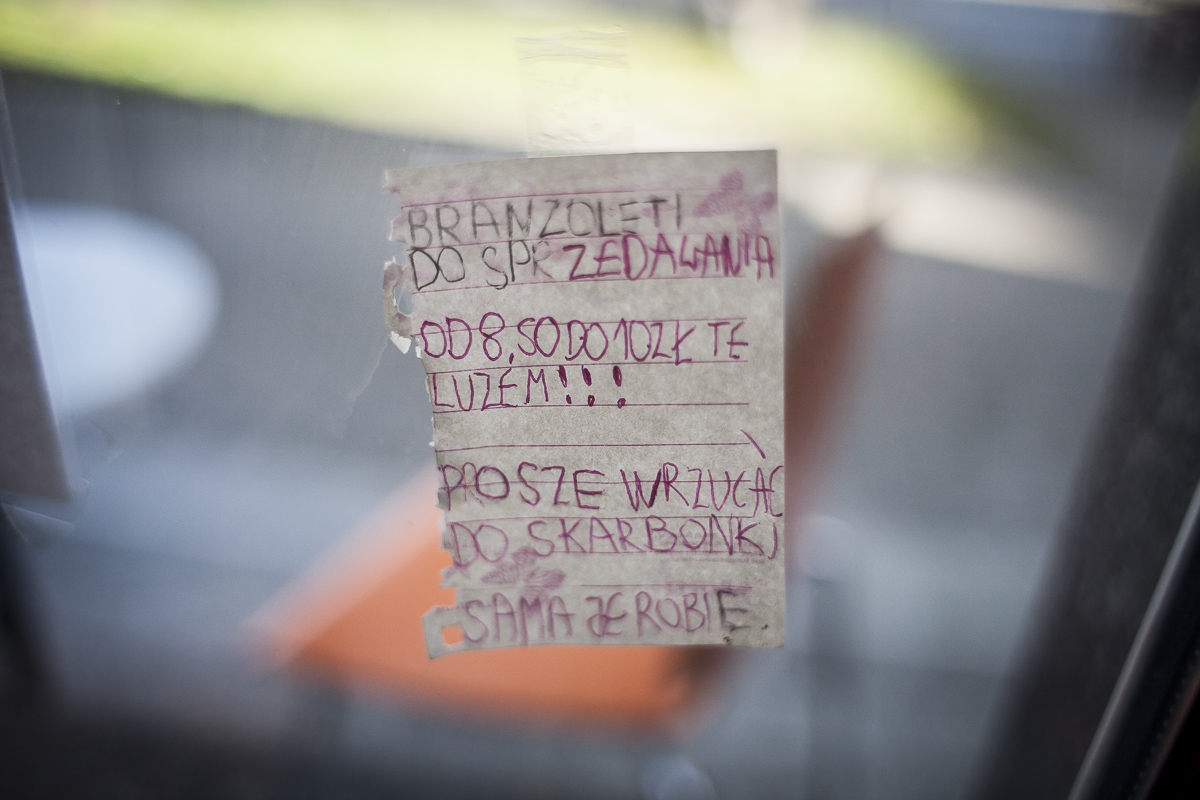 BRANZOLETI
DO SPRZEDAWANIA
OD 8,50 DO 10ZŁ TE
LUZEM!!!
PROSZE WRZUCAĆ
DO SKARBONKI
SAMA JE ROBIE.